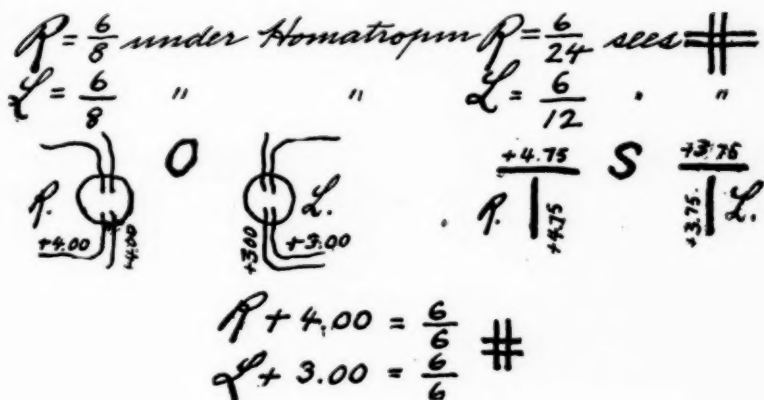 R = 6/8 under Homatropin R = 6/24 sees
L = 6/8 " " L = 6/12 " "
O S
R. L. R. L.
+4.00 +4.00 +3.00 +3.00 +4.75 +4.75 +3.75 +3.75
R + 4.00 = 6/6
L + 3.00 = 6/6